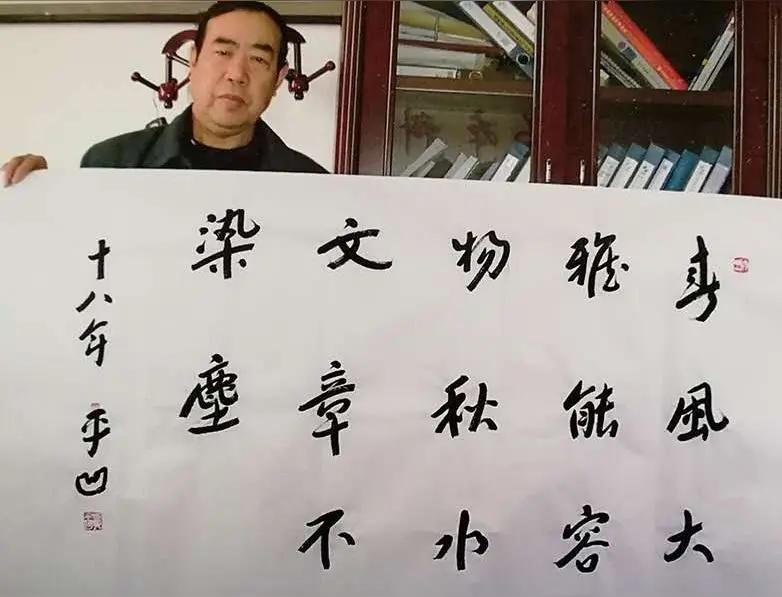 春風大
雅能容
物秋水
文章不
染塵
十八年 平凹